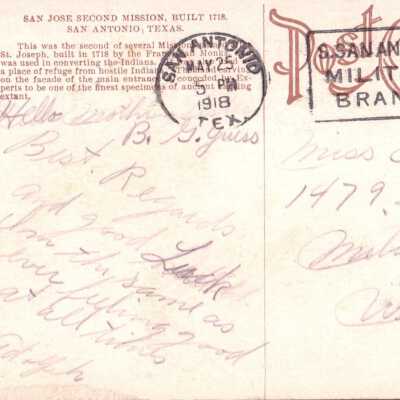 SAN JOSE SECOND MISSION, BUILT 1718.
SAN ANTONIO, TEXAS.
This was the second of several Mission
St. Joseph, built in 1718 by the Franciscan Monks
was used in converting the Indians.
a place of refuge from hostile Indians. The carving
on the facade of the main entrance is conceded by Ex-
perts to be one of the finest specimens of ancient carving
extant.
SAN ANTONIO
MAY 25
5 PM
1918
TEX.
Post
S. SAN AN
MILIT
BRAN
Hello
B. G. Guess
Best Regards
and good Luck
I'm the same as
ever feeling good
at all times
Adolph
Miss
1479
Mil